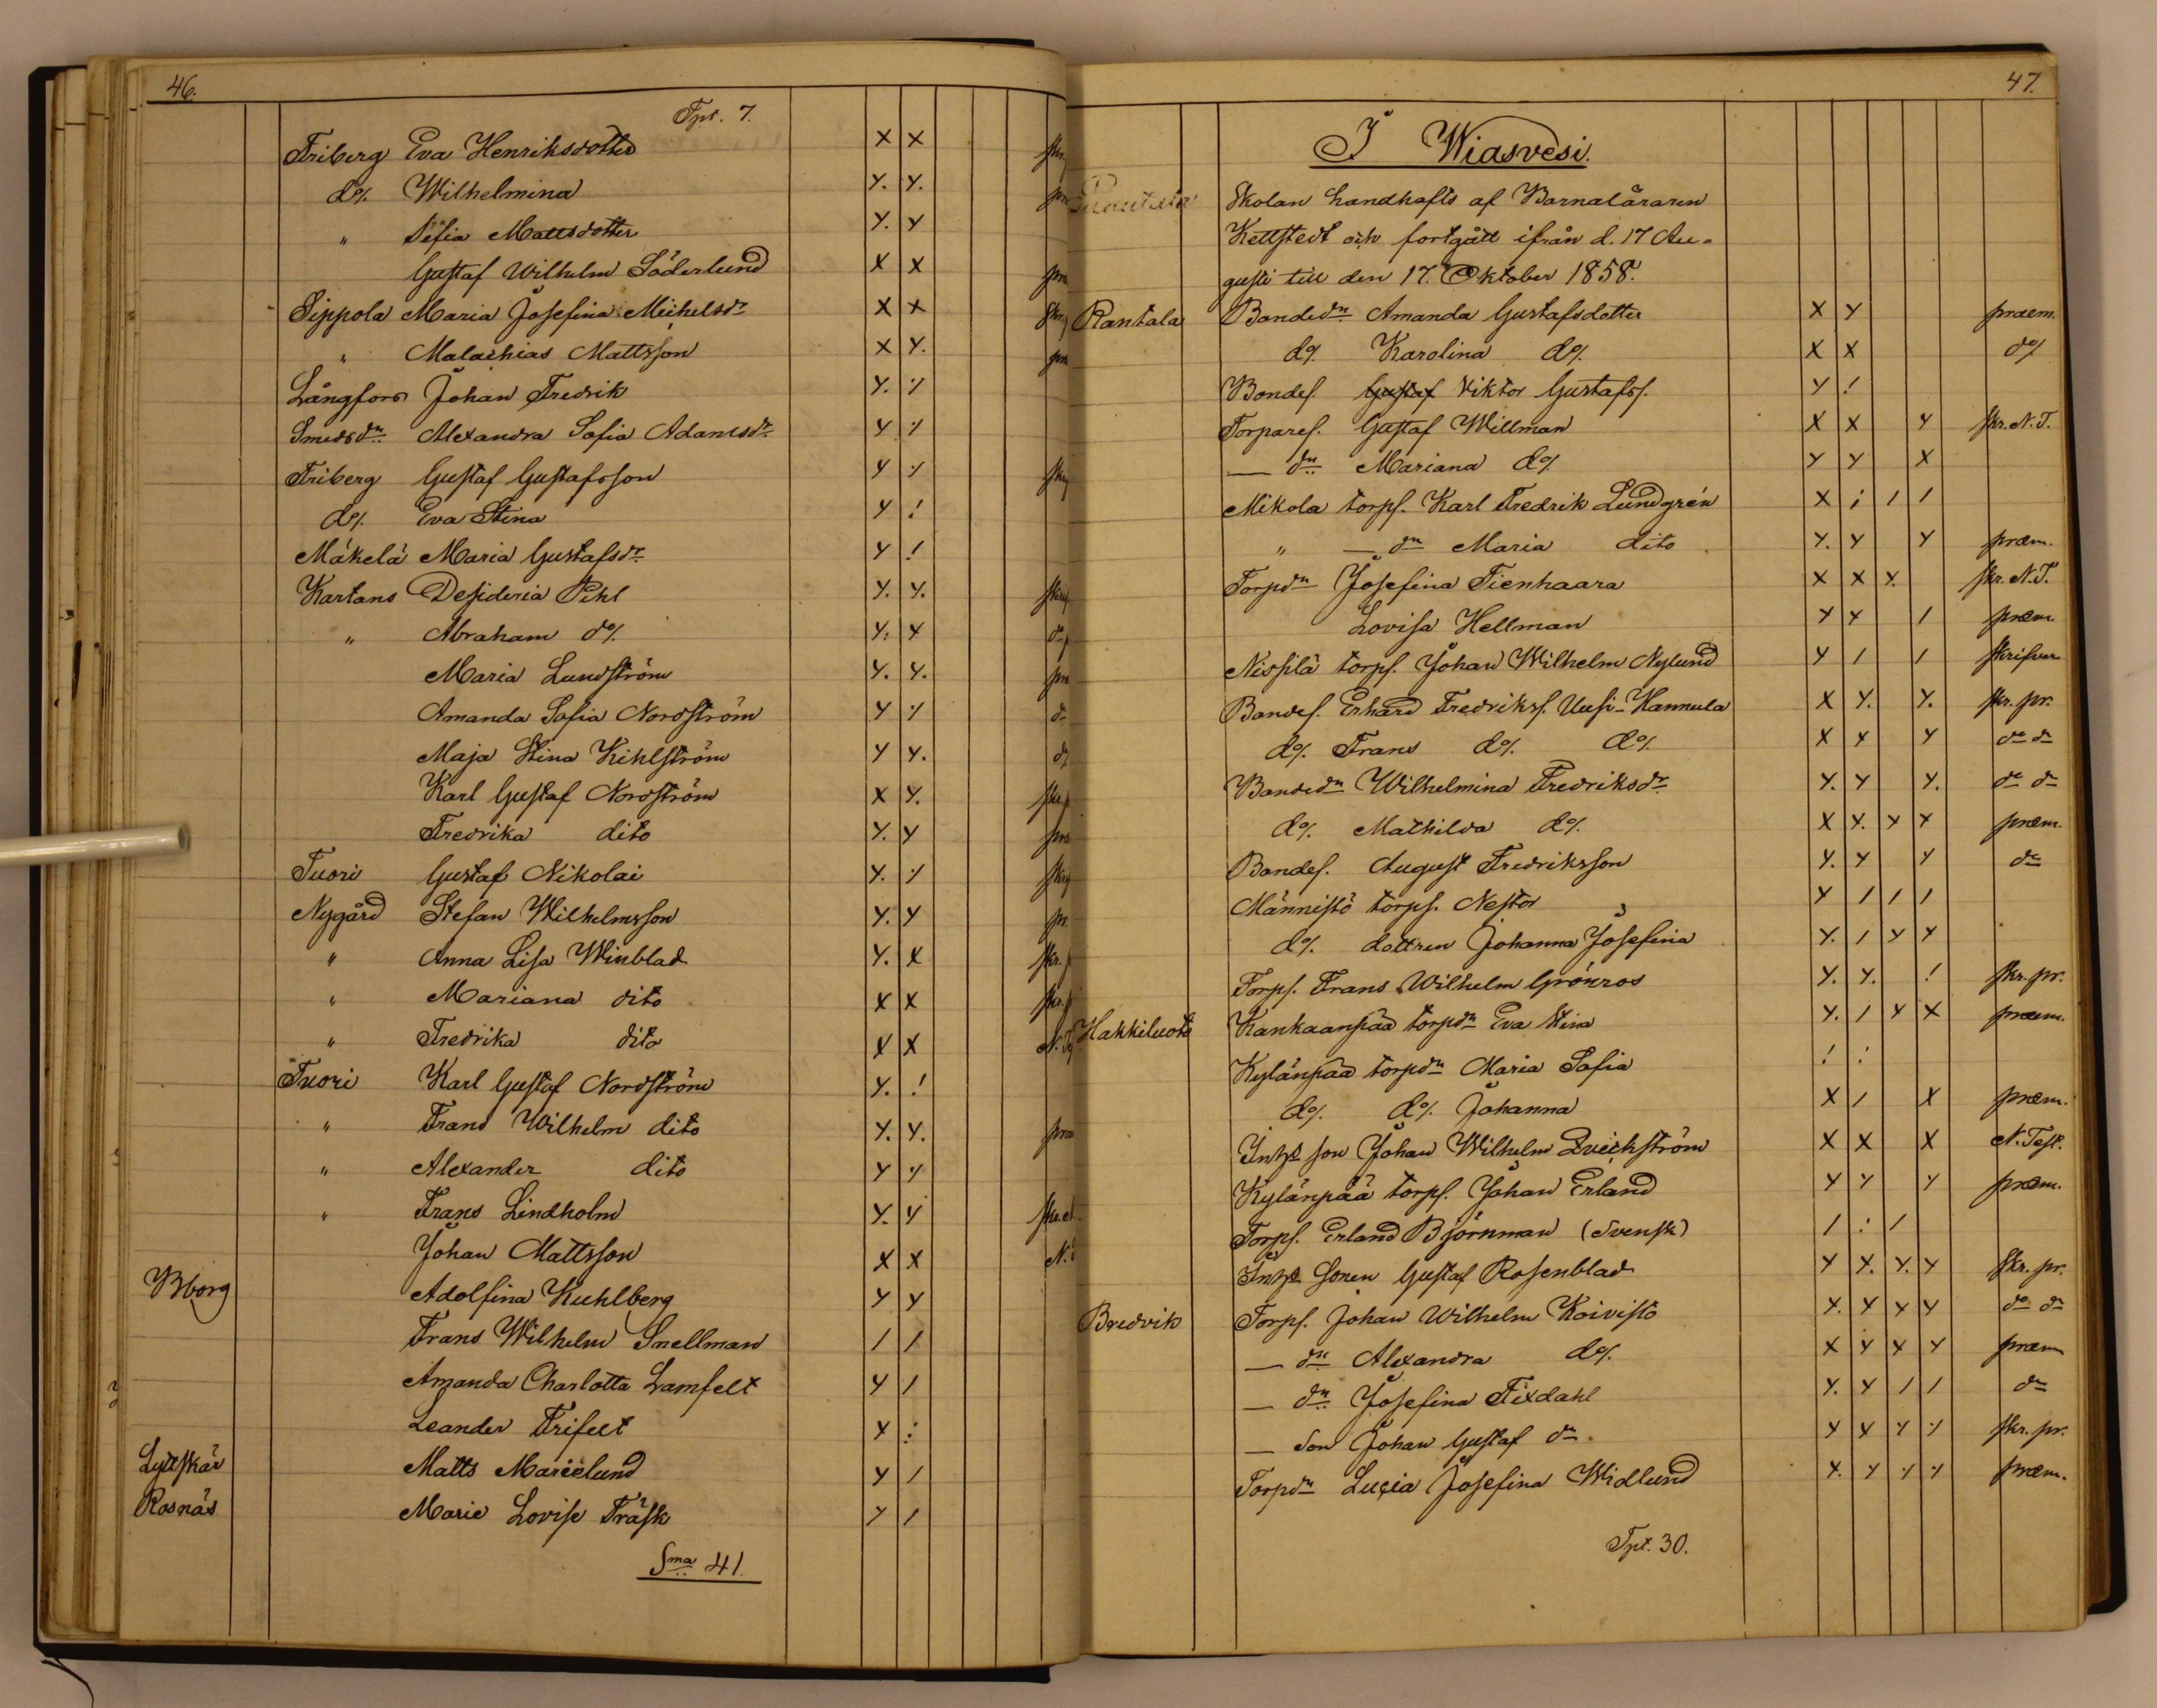 46.
Tpt. 7.
Friberg Eva Henriksdotter X X skr
do/. Wilhelmina Y. Y. pr
" Sefia Mattsdotter Y. Y
Gustaf Wilhelm Söderlund X X pr
Sippola Maria Josefina Michelsdr X X Skr
" Malachias Mattsson X Y. pr
Långfors Johan Fredrik Y. /
Smedsdn Alexandra Sofia Adamsdr Y /
Friberg Gustaf Gustafsson Y / skr
do/. Eva Stina Y !
Mäkelä Maria Gustafsdr Y !
Kartano Desideria Pihl Y. Y. skr
" Abraham do/. Y. X do
Maria Lundström Y. Y. pr
Amanda Sofia Nordström Y / do
Maja Stina Kihlström Y Y. do
Karl Gustaf Nordström X Y. skr. p
Fredrika dito Y. Y pr
Tuori Gustaf Nikolai Y. / skr
Nygård Stefan Wilhelmsson Y. Y pr.
" Anna Lisa Winblad Y. X skr. p
" Mariana dito X X skr. p
" Fredrika dito X X N. T
Tuori Karl Gustaf Nordström Y. !
" Frans Wilhelm dito Y. Y. præ
" Alexander dito Y /
" Frans Lindholm Y. Y skr.
Johan Mattsson X X N.
Bborg Adolfina Kuhlberg Y Y
Frans Wilhelm Snellman / /
Amanda Charlotta Lamfelt Y /
Leander Trifelt X :
Lyttskär Matts Marielund Y /
Rosnäs Marie Lovise Träsk Y /
Sma 41.
47.
I Wiasvesi.
Rantala Skolan handhafts af Barnaläraren
Kettstedt och fortgått ifrån d. 17 Au-
gusti till den 17. Oktober 1858.
Rantala Bondedn Amanda Gustafsdotter X Y praem.
do/. Karolina do/. X X do/
Bondes. Gustaf Viktor Gustafss. Y !
Torpares. Gustaf Willman X X Y skr. N. T.
— dn Mariana do/. Y Y X
Mikola torps. Karl Fredrik Lundgrén X ; / /
" — dn Maria dito Y. Y Y præm.
Torpdn Josefina Tienhaara X X X. skr. N. T.
Lovisa Hellman Y Y / præm
Nissilä torps. Johan Wilhelm Nylund Y / / skrifver
Bondes. Erhard Fredrikss. Uusi-Hannula X Y. Y. skr. pr.
do/. Frans do/. do/. X X Y do do
Bondedn Wilhelmina Fredriksdr Y. Y Y. do do
do/. Mathilda do/. X Y. Y Y præm.
Bondes. August Fredriksson Y. Y Y do
Männistö torps. Nestor Y / / /
do/. dottren Johanna Josefina Y. / Y Y
Torps. Frans Wilhelm Grönroos Y. Y. ! skr. pr.
Hakkiluoto Kankaanpää torpdn Eva Stina Y. / Y X præm.
Kylänpää torpdn Maria Sofia ! :
do/. do/. Johanna X / X præm.
Inhs son Johan Wilhelm Qvickström X X X N. Test.
Kylänpää torps. Johan Erland Y Y Y præm.
Torps. Erland Björnman (Svensk) / : /
Inhs Sonen Gustaf Rosenblad Y Y. Y. Y skr. pr.
Bredvik Torps. Johan Wilhelm Koivisto X. X Y Y do do
— dn Alexandra do/. X Y X Y præm
— dn Josefina Fixdahl Y. Y / / do
— Son Johan Gustaf do. Y Y Y / skr. pr.
Torpdn Lucia Josefina Widlund X. Y / / præm.
Tpt. 30.